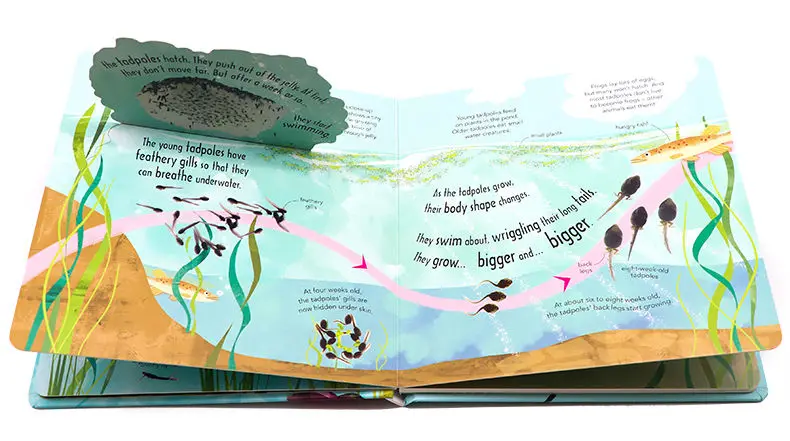 the tadpoles hatch. They push out of the jelly. At first,
they don't move far. But after a week or so...
They start
swimming.
The young tadpoles have
feathery gills so that they
can breathe underwater.
feathery
gills
At four weeks old,
the tadpoles' gills are
now hidden under skin.
Young tadpoles feed
on plants in the pond.
Older tadpoles eat small
water creatures.
small plants
Frogs lay lots of eggs,
but many won't hatch. And
most tadpoles don't live
to become frogs – other
animals eat them!
hungry fish
As the tadpoles grow,
their body shape changes.
They swim about, wriggling their long tails.
They grow... bigger and... bigger.
back
legs
eight-week-old
tadpoles
At about six to eight weeks old,
the tadpoles' back legs start growing.